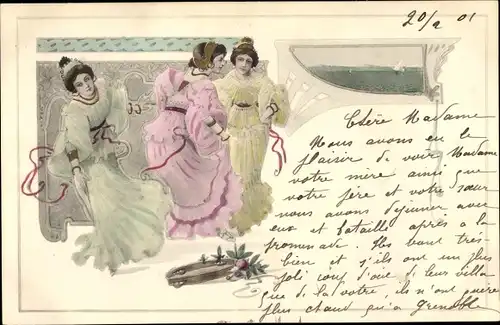 20/2 01
Chère Madame
Nous avons eu le
plaisir de voir Madame
votre mère ainsi que
votre père et votre sœur
nous avons déjeuner avec
eux et bataille après à la
promenade. Ils vont très
bien et s'ils ont un plus
joli coup d'œil de leur villa
que de la votre, ils n'ont guère
plus chaud qu'à Grenoble